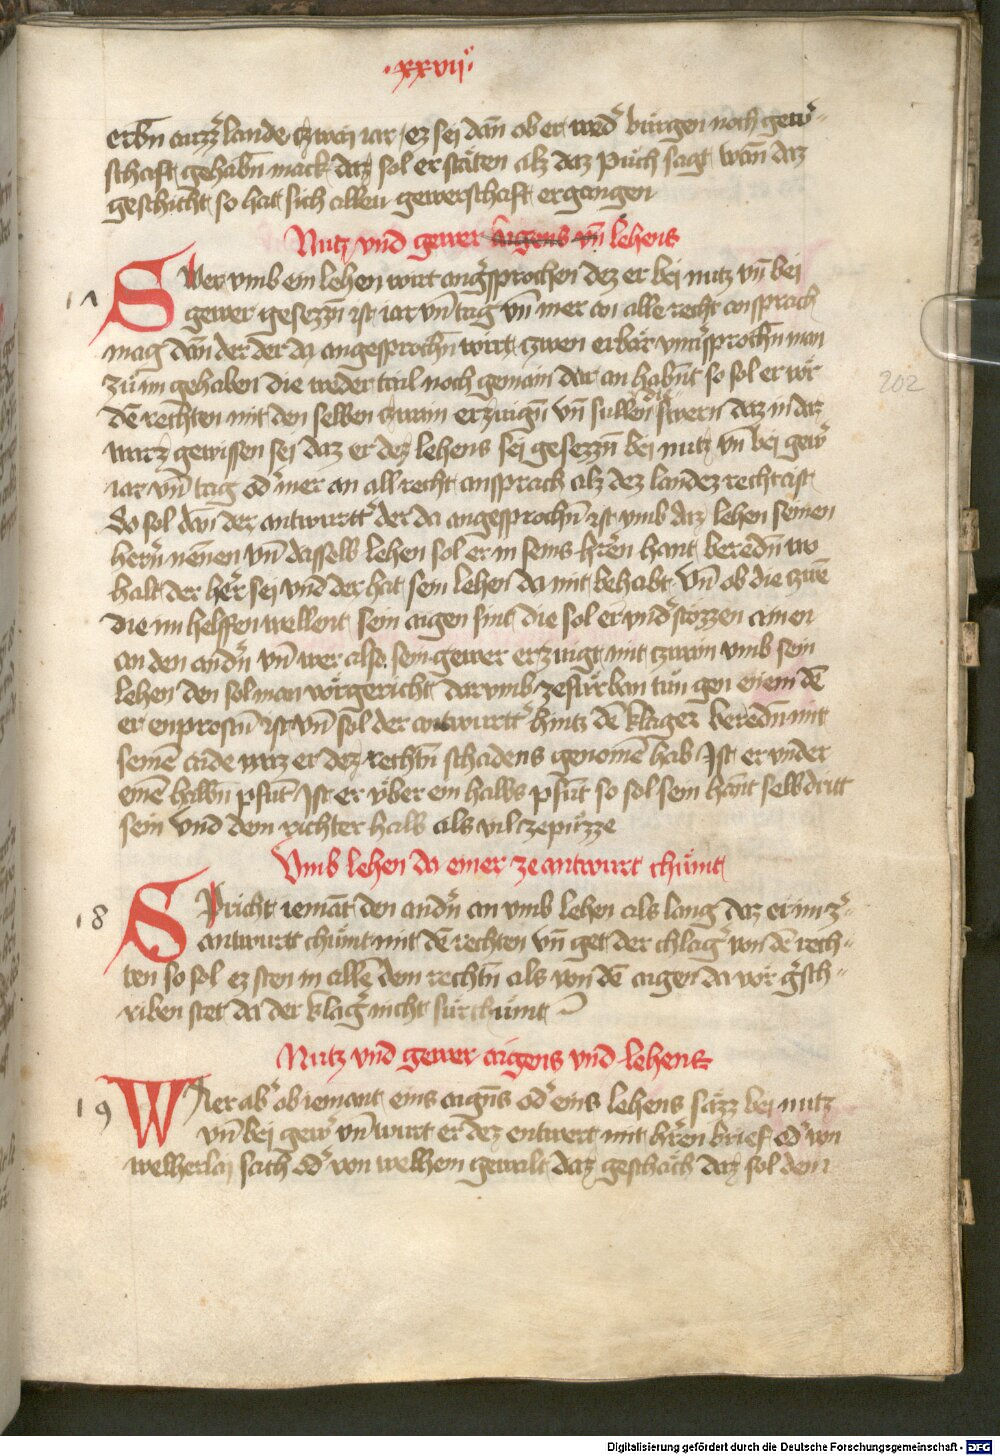 ·xxvij·
erbn auzz̄ lande tzwaij iar / ez sej dan̄ ob er wed̾ burgen noch gew̾-
schaft gehabn̄ mack daz sol er stäten alz daz půch sagt wan̄ daz
geschicht so hat sich allew gewerschaft ergangen
Nutz vnd gewer aigens vn̄ lehens
17 Swer vmb ein lehen wirt ang̾sprochen dez er bei nutz vn̄ bei
gewer gesezzn̄ ist iar vn̄ tag vn̄ mer an alle recht ansprach
mag dan̄ der der da angesprochn̄ wirt tzwen erbär vnu̾sprochn̄ man
zů im gehaben die weder tail noch gemain dar an habn̄t so sol er vör
dē rechten mit den selben tzwain erzaign̄ vn̄ sullen swern daz in daz
warz gewissen sei daz er dez lehens sej gesezzn̄ bei nutz vn̄ bei gew̾
iar vn̄ tag od̾ mer an all recht ansprach alz dez landez recht ist
So sol dan̄ der antwurtt̾ der da angesprochn̄ ist vmb daz lehen seinen
hern̄ nēnen vn̄ dasselb lehen sol er in seins h̾ren hant beredn̄ wo
halt der her̾ sei vnd der hat sein lehen da mit behabt Vn̄ ob die zwē
die im helffen wellent sein aigen sint die sol er vnd̾stozzen ainen
an den and̾n vn̄ wer also sein gewer erzaigt mit tzwain vmb sein
lehen den sol man vörgericht darvmb ze fürban tůn gen einem dē
er enprostn̄ ist vn̄ sol der antwurtt̾ hintz dē klager beredn̄ mit
seinē aide waz er dez rechtn̄ schadens genomē hab Ist er vnder
einē halbn̄ pfunt Ist er vber ein halbs pfūt so sol sein hant selbdritt
sein vnd dem richter halb als vil ze půzze
Vmb lehen da einer ze antwurt chůmt
18 Spricht iemāt den and̾n an vmb lehen als lang daz er im z̾-
antwurtt chůmt mit dē rechten vn̄ get der chlag̾ von dē rech-
ten so sol ez sten in allē dem rechtn̄ als von dē aigen da vör g̾sch-
riben stet da der klag̾ nicht fürchůmt
Nutz vnd gewer aigens vnd lehens
19 Waer ab̾ ob iemant eins aigns̄ od̾ eins lehens säzz bei nutz
vn̄ bei gew̾ vn̄ wurt er dez entwert mit h̾ren brief od̾ von
welherlaj sach od̾ von welhem gewalt daz geschäch daz sol dem
202
Digitalisierung gefördert durch die Deutsche Forschungsgemeinschaft - DFG